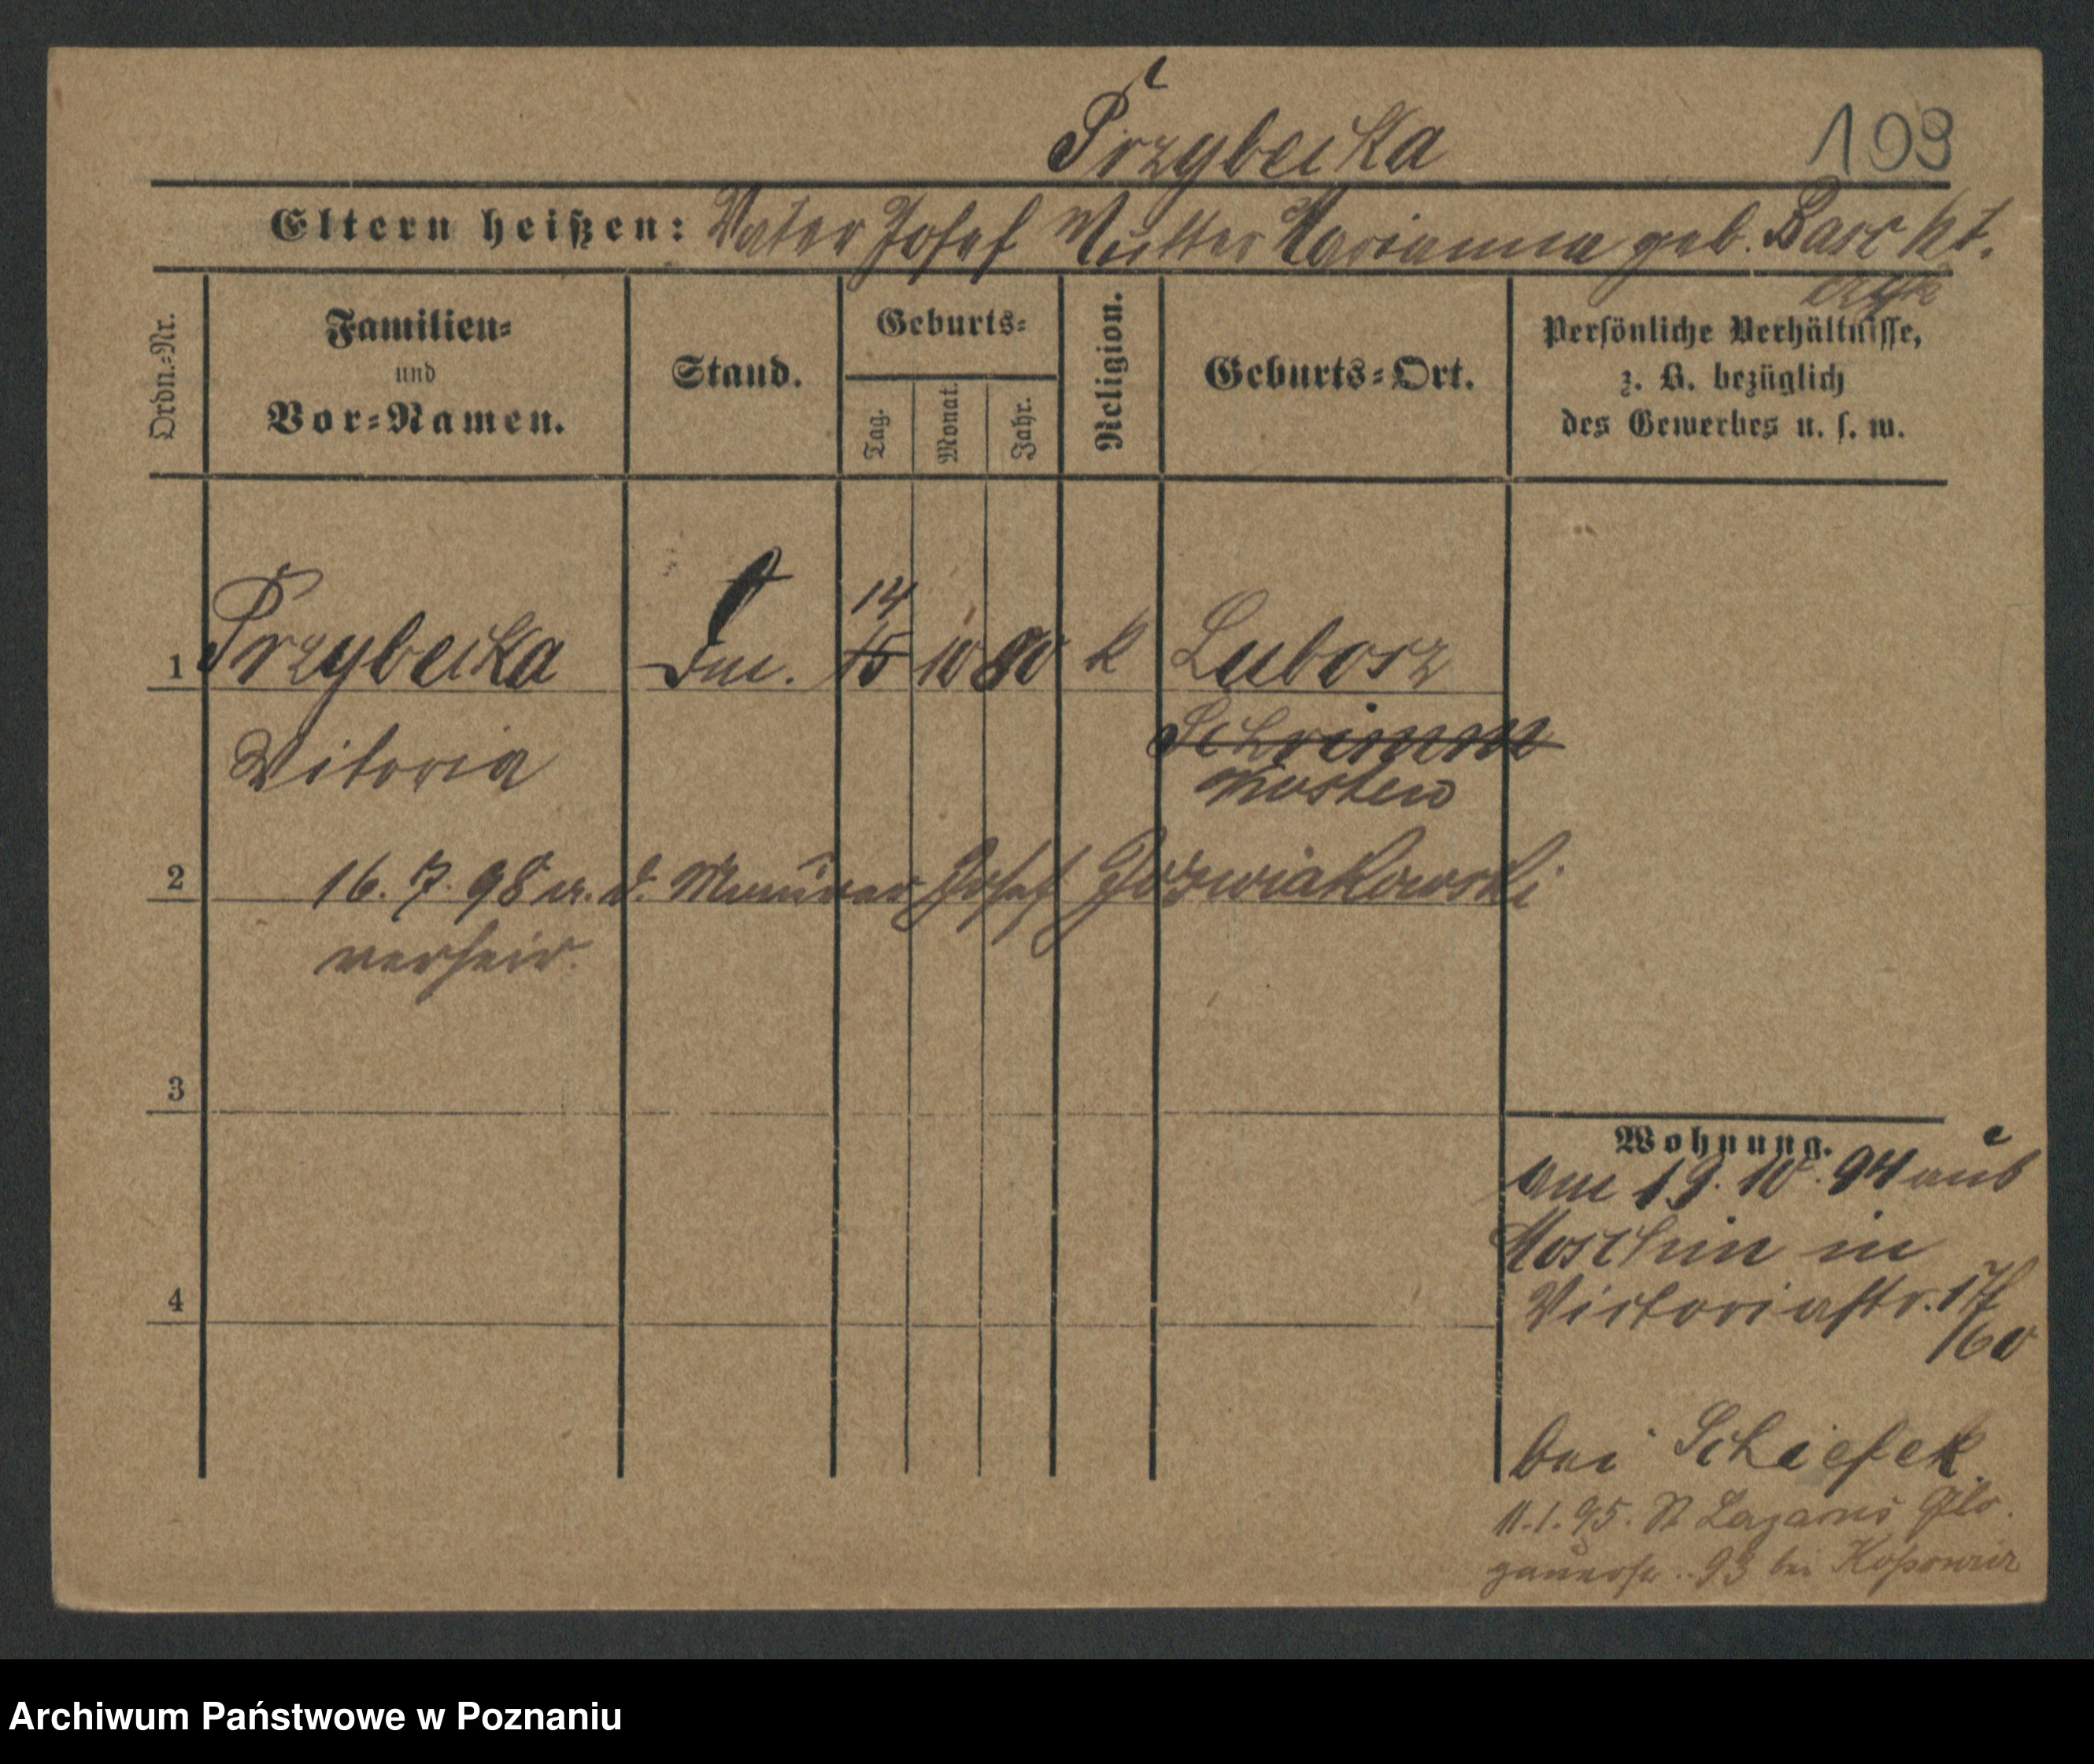 Przybecka
109
Eltern heißen: Vater Josef Mutter Marianna geb.
Ordn.-Nr.
Familien-
und
Vor-Namen.
Stand.
Geburts-
Tag.
Monat.
Jahr.
Religion.
Geburts-Ort.
Persönliche Verhältnisse,
z. B. bezüglich
des Gewerbes u. s. w.
14
1 Przybecka 15 10 80 k Lubosz
Schrimm
Vitoria Kosten
2 16. 7. 98 m. d. Maurer Josef Jozwiakowski
verheir.
3
Wohnung.
am 19. 10. 94 aus
Moschin in
4
Victoriastr. 17
bei
11.1.95. St Lazarus Glo
gauerstr. 93 bei
Archiwum Państwowe w Poznaniu